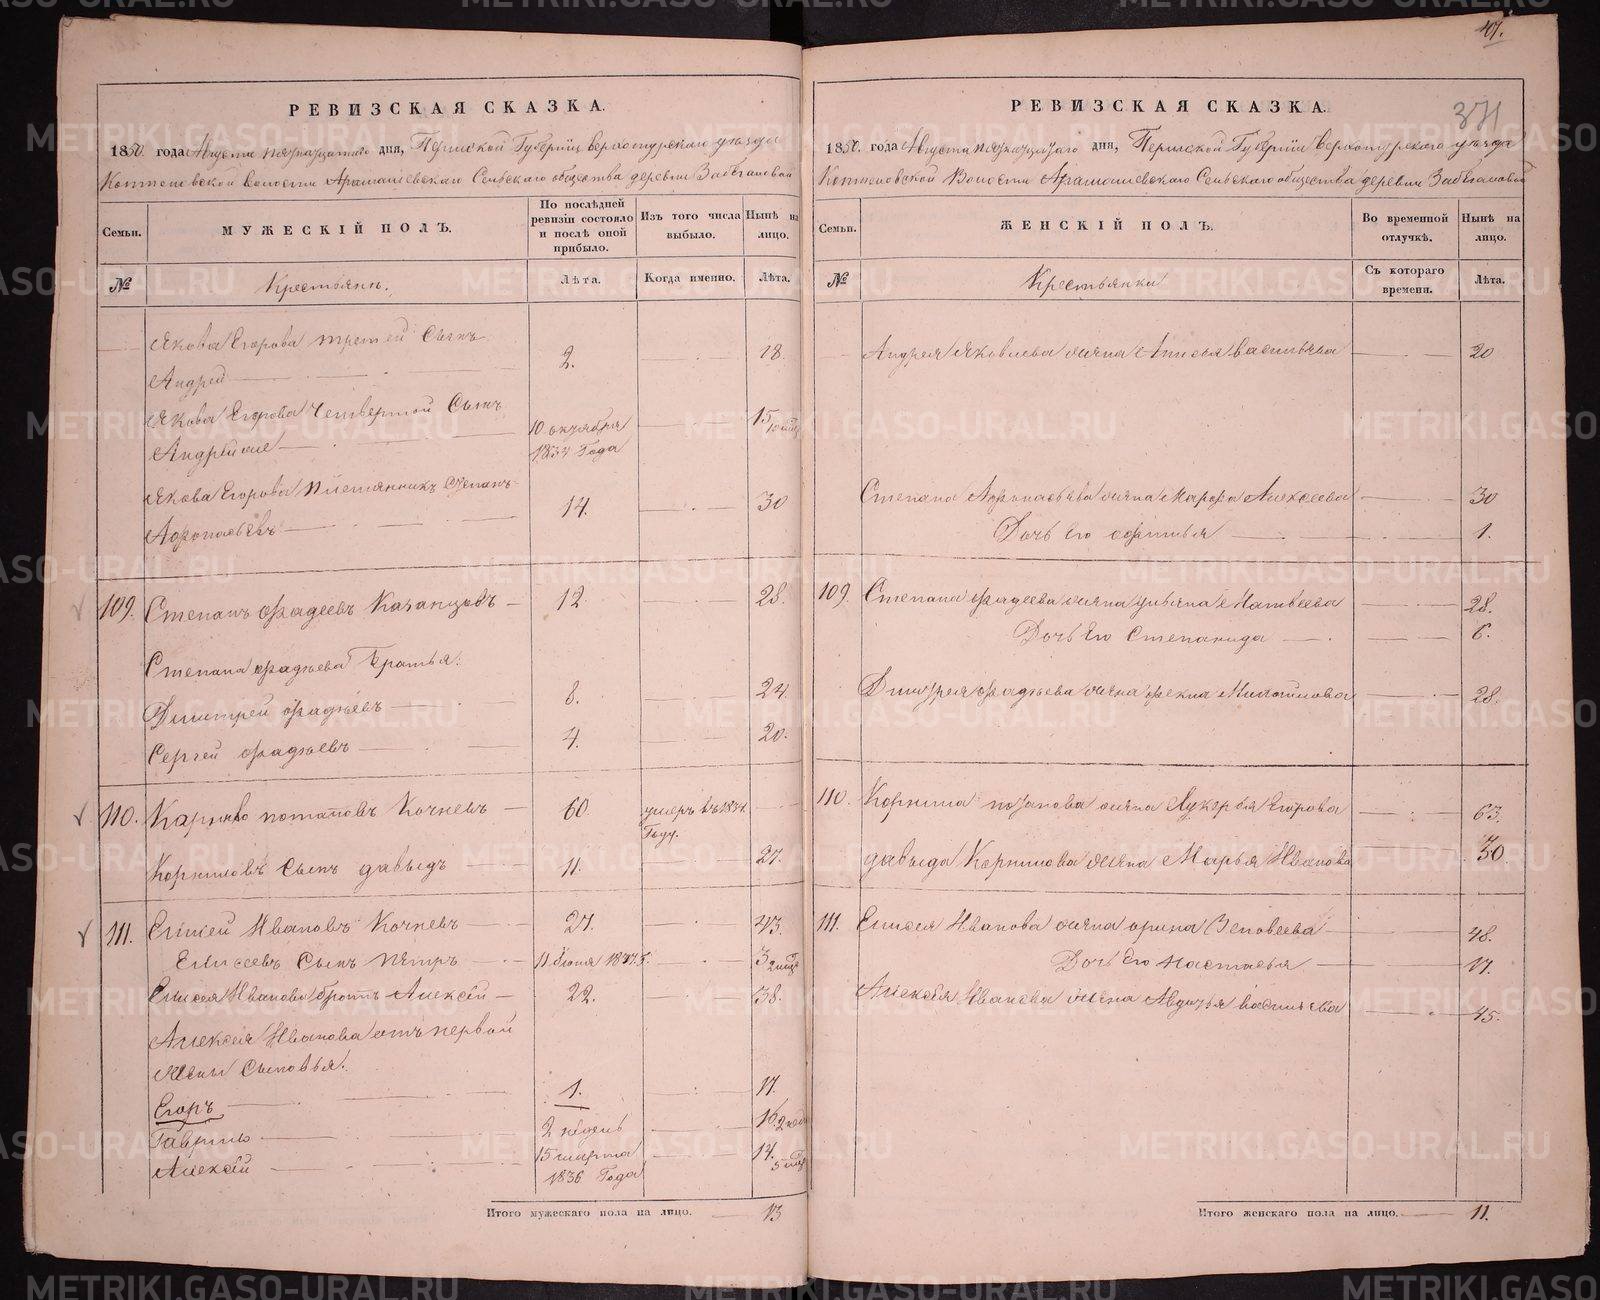 401.
РЕВИЗСКАЯ СКАЗКА.
1850. года Августа дня, Пермской Губернiи Верхотурскаго уѣзда
Коптеловской волости Арамашевскаго Сельскаго общества деревни
Семьи.
МУЖЕСКІЙ ПОЛЪ.
По послѣдней ревизіи состояло и послѣ оной прибыло.
Изъ того числа выбыло.
Нынѣ на лицо.
№
Крестьяне.
Лѣта.
Когда именно.
Лѣта.
Якова Егорова третей Сынъ
Андрей 2. 18.
Якова Егорова Четвертой Сынъ
10 октября 1834 Года 15
Якова Егорова племянникъ Степанъ
14. 30
109. Степанъ Фадеевъ Казанцовъ 12. 28.
Степана Фадѣева братья.
Дмитрей Фадѣевъ 8. 24
Сергей Фадѣевъ 4. 20.
110. потаповъ Кочневъ 60. умеръ въ 1834 Году.
Корниловъ Сынъ давыдъ 11. 27.
111. Елисей Ивановъ Кочневъ 27. 43.
Елисеевъ Сынъ Пётръ 3
Елисея Иванова братъ Алексѣй 22. 38.
Алексѣя Иванова отъ первой
жены Сыновья.
Егоръ 1. 17.
Гаврило 2 недѣль 16
Алексѣй 15 марта 1836 Года 14.
Итого мужескаго пола на лицо. 13
РЕВИЗСКАЯ СКАЗКА.
371
1850. года Августа дня, Пермской Губернiи Верхотурскаго уѣзда
Коптеловской Волости Арамашевскаго Сельскаго общества деревни
Семьи.
ЖЕНСКІЙ ПОЛЪ.
Во временной отлучкѣ.
Нынѣ на лицо.
№
Крестьянки
Съ котораго времени.
Лѣта.
Андрея Яковлева жена Васильева 20
Степана жена Марфа Алексеева 30
Дочь Его 1.
109. Степана Фадеева жена Ульяна Матвеева 28.
Дочь Его Степанида 6.
Дмитрея Фадѣева жена Фекла Михайлова 28.
110. Корнила потапова жена Лукерья Егорова 63.
давыда Корнилова жена Марья Иванова 30.
111. Елисея Иванова жена орина 48.
Дочь Его Настасья 17.
Алексѣя Иванова жена Авдотья васильева 45.
Итого женскаго пола на лицо. 11.
METRIKI.GASO-URAL.RU